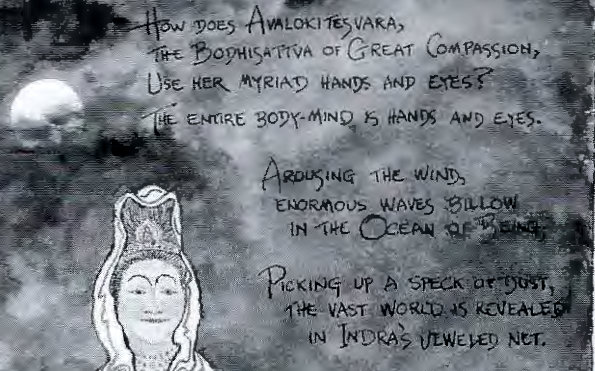 How does Avalokitesvara,
the Bodhisattva of Great Compassion,
Use her myriad hands and eyes?
The entire body-mind is hands and eyes.
Arousing the wind,
enormous waves billow
in the Ocean of Being;
Picking up a speck of dust,
the vast world is revealed
in Indra's jeweled net.